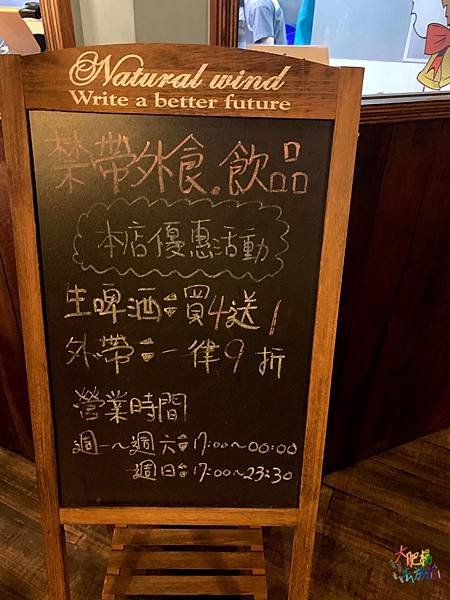 Natural wind
Write a better future
禁帶外食。飲品
本店優惠活動
生啤酒：買4送1
外帶：一律9折
營業時間
週一～週六：17:00～00:00
週日：17:00～23:30
大肥楊